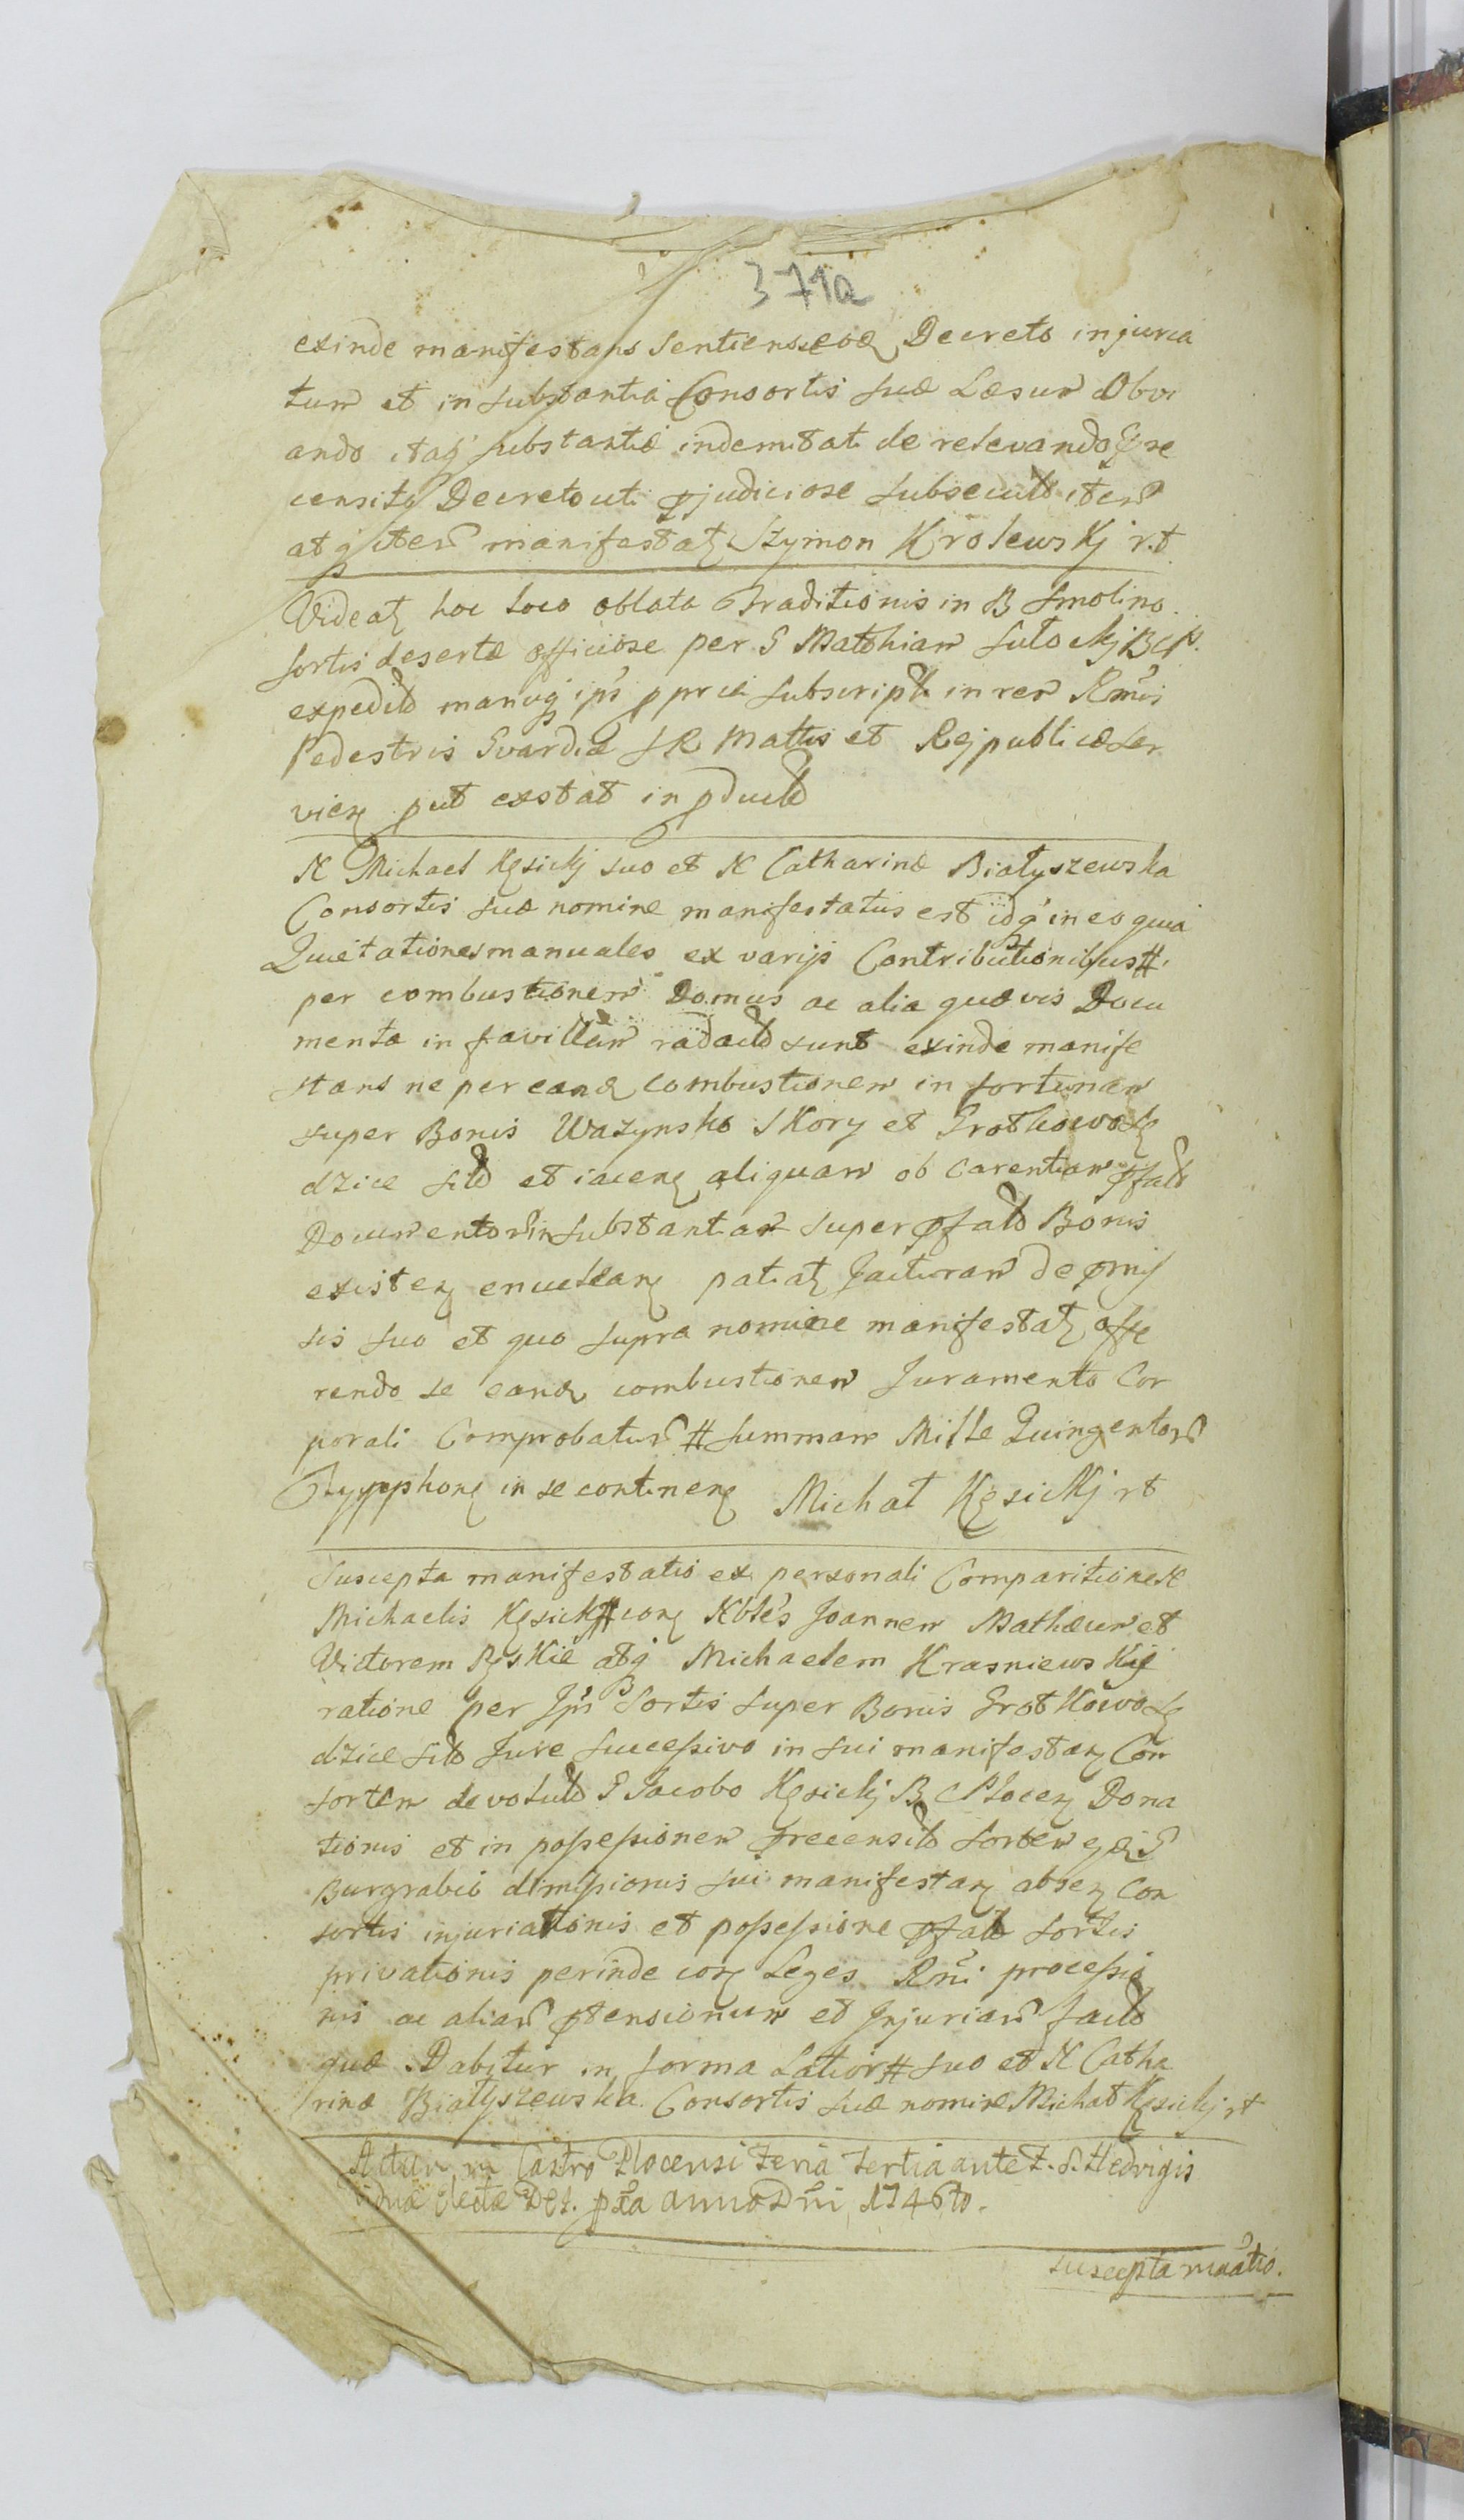 371a
exinde manifestans sentiens se eodq Decreto injuria
tum et in substantia Consortis suæ Læsum Obvi
ando itaq substantiæ indemnitati de relevando que
censito Decreto uti pjudiciose subsecuto iterum
atq iterum manifestatz Szymon Krolewskj r.t
Videatz hoc loco oblata Traditionis in B Smolino
sortis desertæ officiose per G Mathiam Sutockj B C P.
expedito manuq ips ppria subscripto in rem Rmĩs
Pedestris Gvardiæ S R Mattis et Rejpublicæ Ser
vienz put exstat in pducto
N Michael Kęsickj suo et N Catharinæ Białyszewska
Consortis suæ nomine manifestatus est idq in eo quia
Quietationes manuales ex varijs Contributionibus #.
per combustionem Domus ac alia quævis Docu
menta in favillam radacto sunt exinde manife
stans ne per eandq combustionem in fortunam
super Bonis Wazynsko Skory et Grotkowo Sę
dzice sito et iacenz aliquam ob carentiam pfato
Documentorum in substantiam super pfato Bonis
existenz patiatz Jacturam de pmis
sis suo et quo supra nomine manifestatz offe
rendo se eandq combustionem Juramento Cor
porali Comprobaturum # Summam Mille Quingentorum
Tympphonz in se continenz Michał Kęsickj rt
Suscepta manifestatio ex personali Comparitione N
Michaelis Kęsickj # conz Nbles Joannem Mathæum et
Victorem Ryskie atq Michaelem Krasniewskie
ratione per Ips B Sortis super Bonis Grotkowo Sę
dzice sito Jure successivo in sui manifestanz Con
sortem devoluto G Jacobo Kęsickj B C Plocenz Dona
tionis et in possessionem precensito sortem ejdq G
Burgrabio dimissionis sui manifestanz absenz Con
sortis injuriationis et possessione pfato sortis
privationis perinde conz Leges Rñi processio
nis ac aliarum ptensionum et Injuriarum facto
quæ Dabitur in forma Latiori # suo et N Catha
rinæ Białyszewska Consortis suæ nomine Michał Kęsickj rt
Actum in Castro Plocensi feria tertia ante F. S. Hedvigis
viduæ electæ Dej. pxĩa anno Dñi 1746to.
Suscepta mãatio.